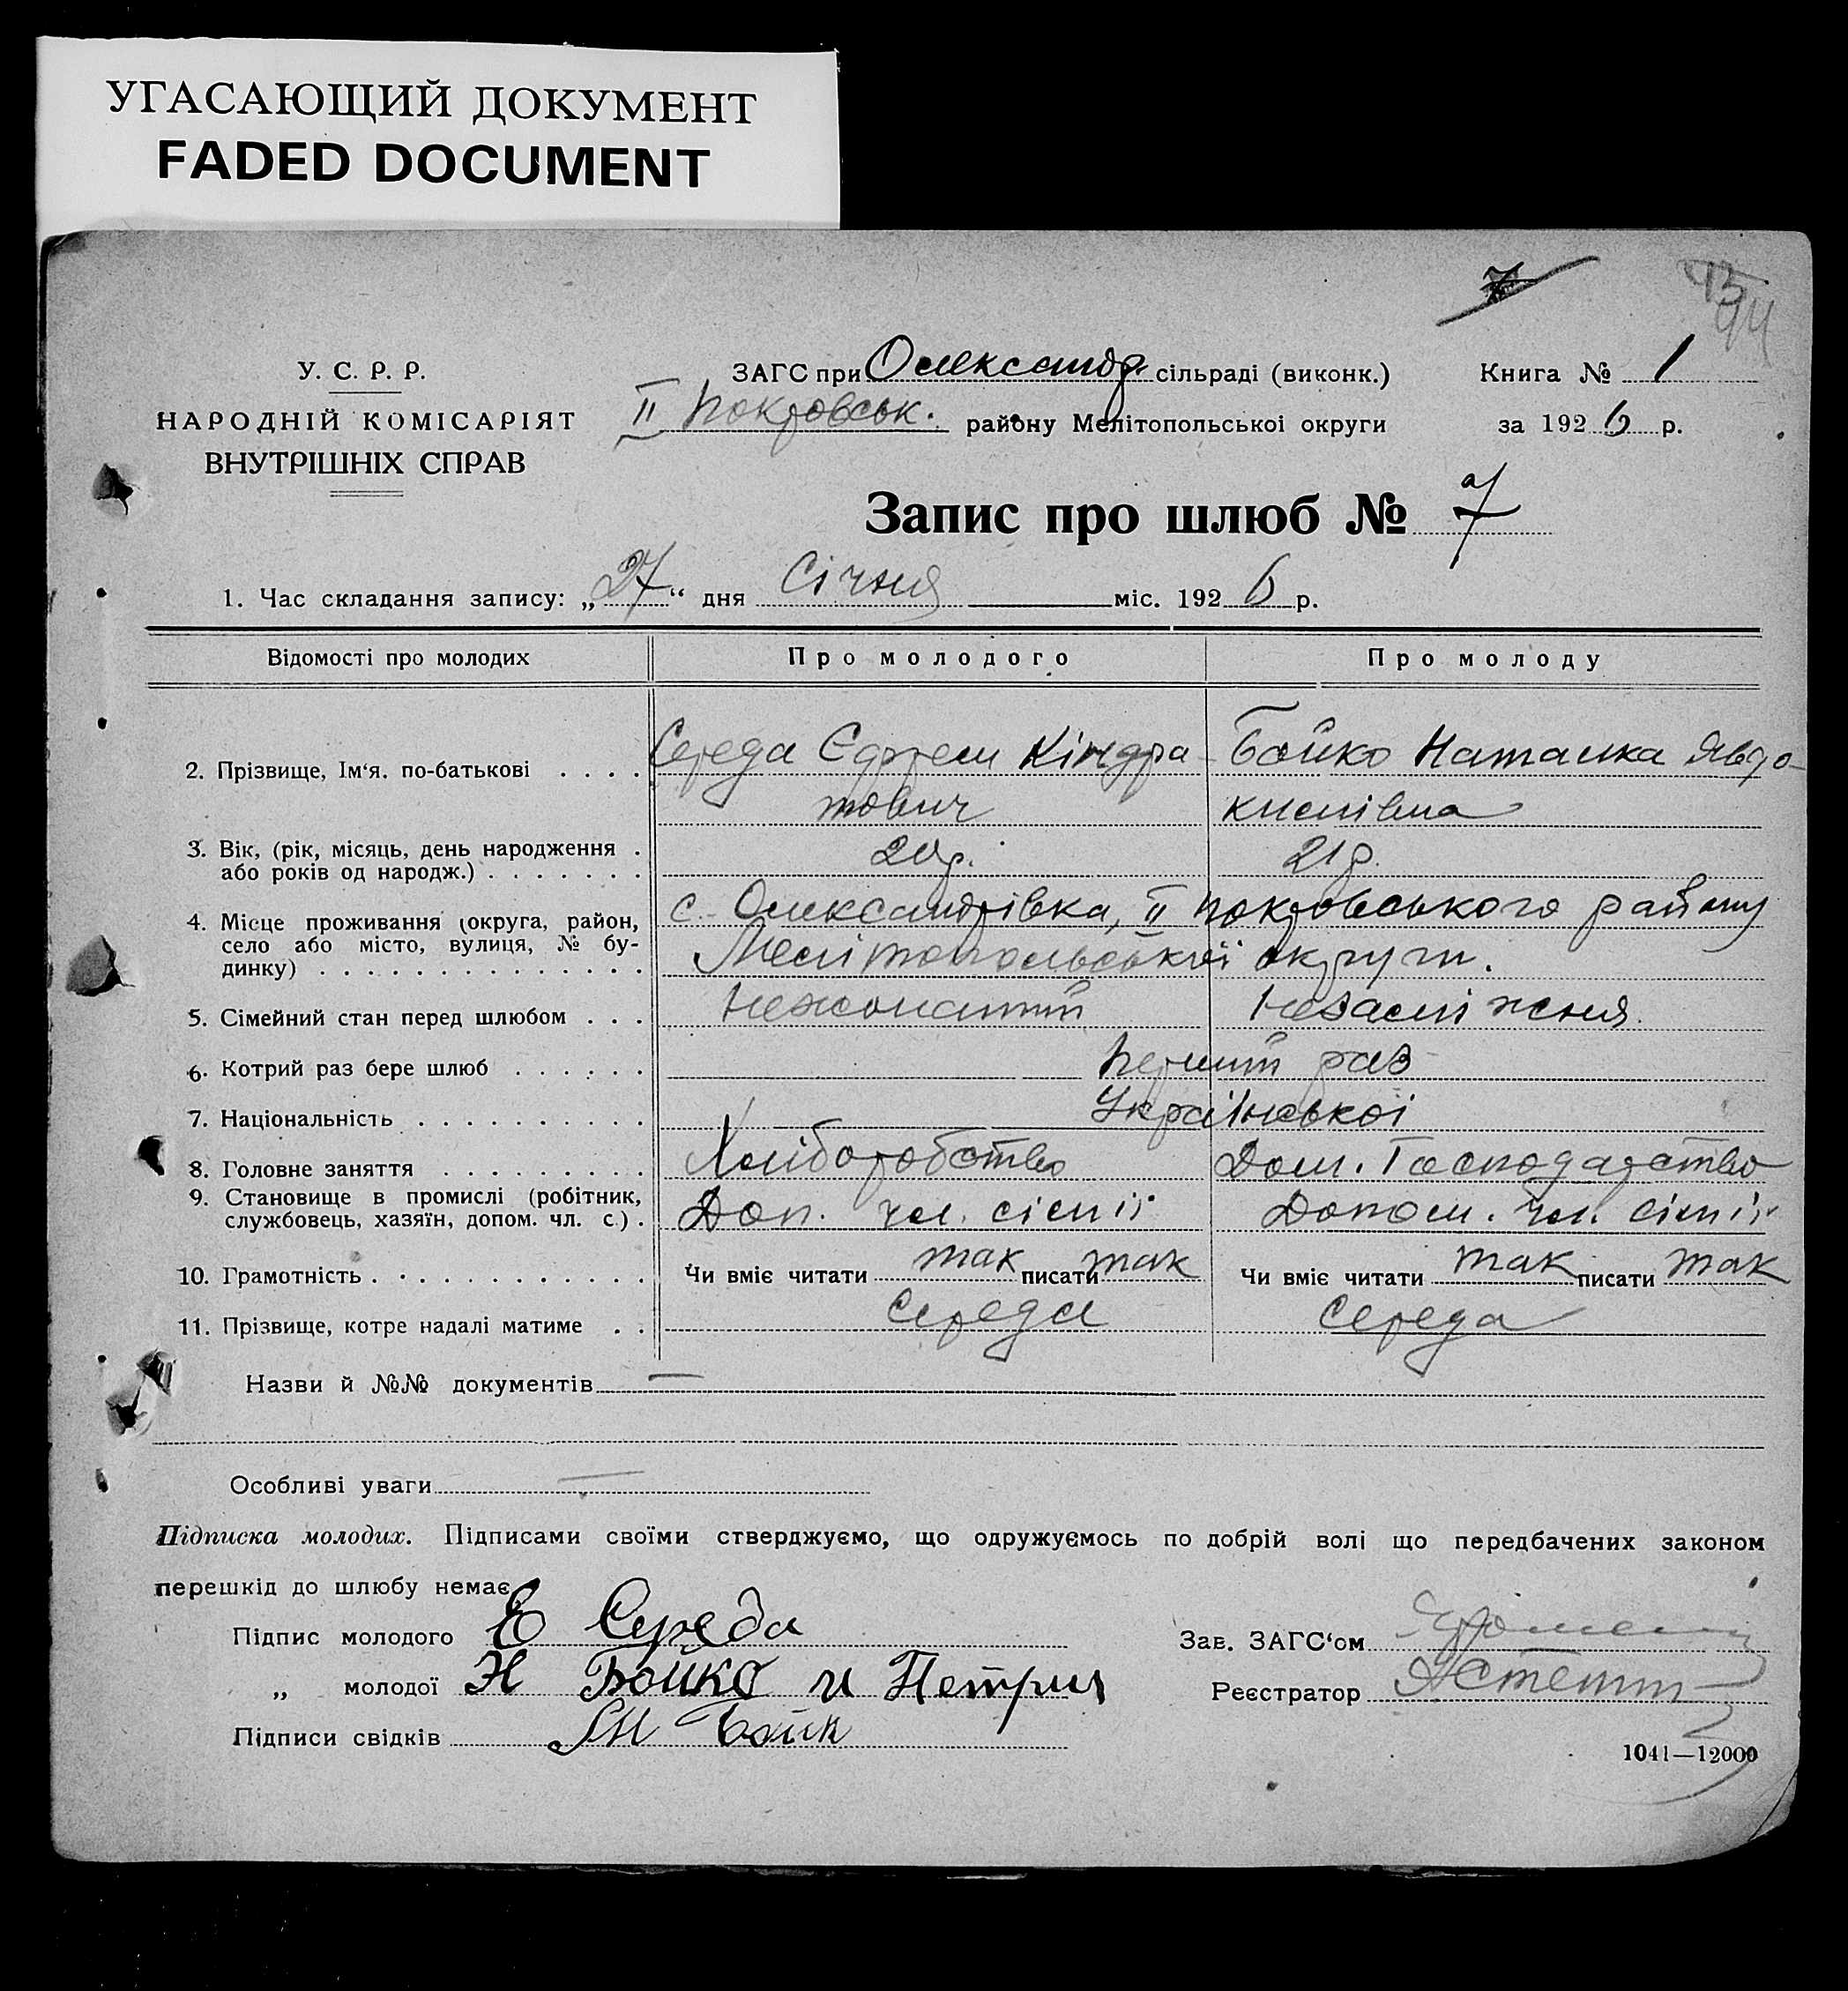 УГАСАЮЩИЙ ДОКУМЕНТ
FADED DOCUMENT
У. С. Р. Р.
НАРОДНІЙ КОМІСАРІЯТ
ВНУТРІШНІХ СПРАВ
ЗАГС при Олександр. сільраді (виконк.)
II Покровськ. району Мелітопольскоі округи
Книга № 1
за 1926 р.
Запис про шлюб № 7
1. Час складання запису: „27“ дня Січня міс. 1926 р.
Відомості про молодих Про молодого Про молоду
2. Прізвище, Ім‘я. по-батькові . . . . Середа Єфрем Кіндра- Бойко Наталка Явдо-
тович кимівна
3. Вік, (рік, місяць, день народження . 20 р. 21 р.
або років од народж.) . . . . . . .
4. Місце проживання (округа, район, с. Олександрівка, II Покровського району
село або місто, вулиця, № бу- Мелітопольської округи.
динку) . . . . . . . . . . . . . .
5. Сімейний стан перед шлюбом . . . Нежонатий Незаміжня.
6. Котрий раз бере шлюб . . . . . . Перший раз
7. Національність . . . . . . . . . . Української
8. Головне заняття . . . . . . . . . Хліборобство Дом. Господарство
9. Становище в промислі (робітник,
службовець, хазяїн, допом. чл. с.) . Доп. чл. сімії Допом. чл. сімії
10. Грамотність . . . . . . . . . . . . Чи вміє читати так писати так Чи вміє читати так писати так
11. Прізвище, котре надалі матиме . . Середа Середа
Назви й №№ документів —
Особливі уваги —
Підписка молодих. Підписами своїми стверджуємо, що одружуємось по добрій волі що передбачених законом
перешкід до шлюбу немає.
Підпис молодого Е Середа
Зав. ЗАГС‘ом
„ молодої Н Бойко и Петрик
Реєстратор
Підписи свідків М Бойк
1041—12000